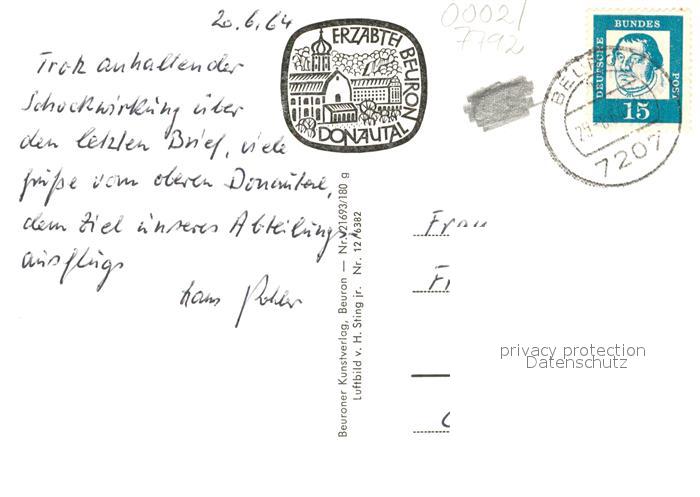 20.6.64
Trotz anhaltender
Schockwirkung über
den letzten Brief, viele
Grüße vom oberen Donautal,
dem Ziel unseres Abteilungs-
ausflugs
Hans
ERZABTEI BEURON
DONAUTAL
Beuroner Kunstverlag, Beuron — Nr. V21693/180 g
Luftbild v. H. Sting jr. Nr. 12/6382
0002/
7792
DEUTSCHE
BUNDES
POST
15
BEU
7207
Frau
Fr
privacy protection
Datenschutz